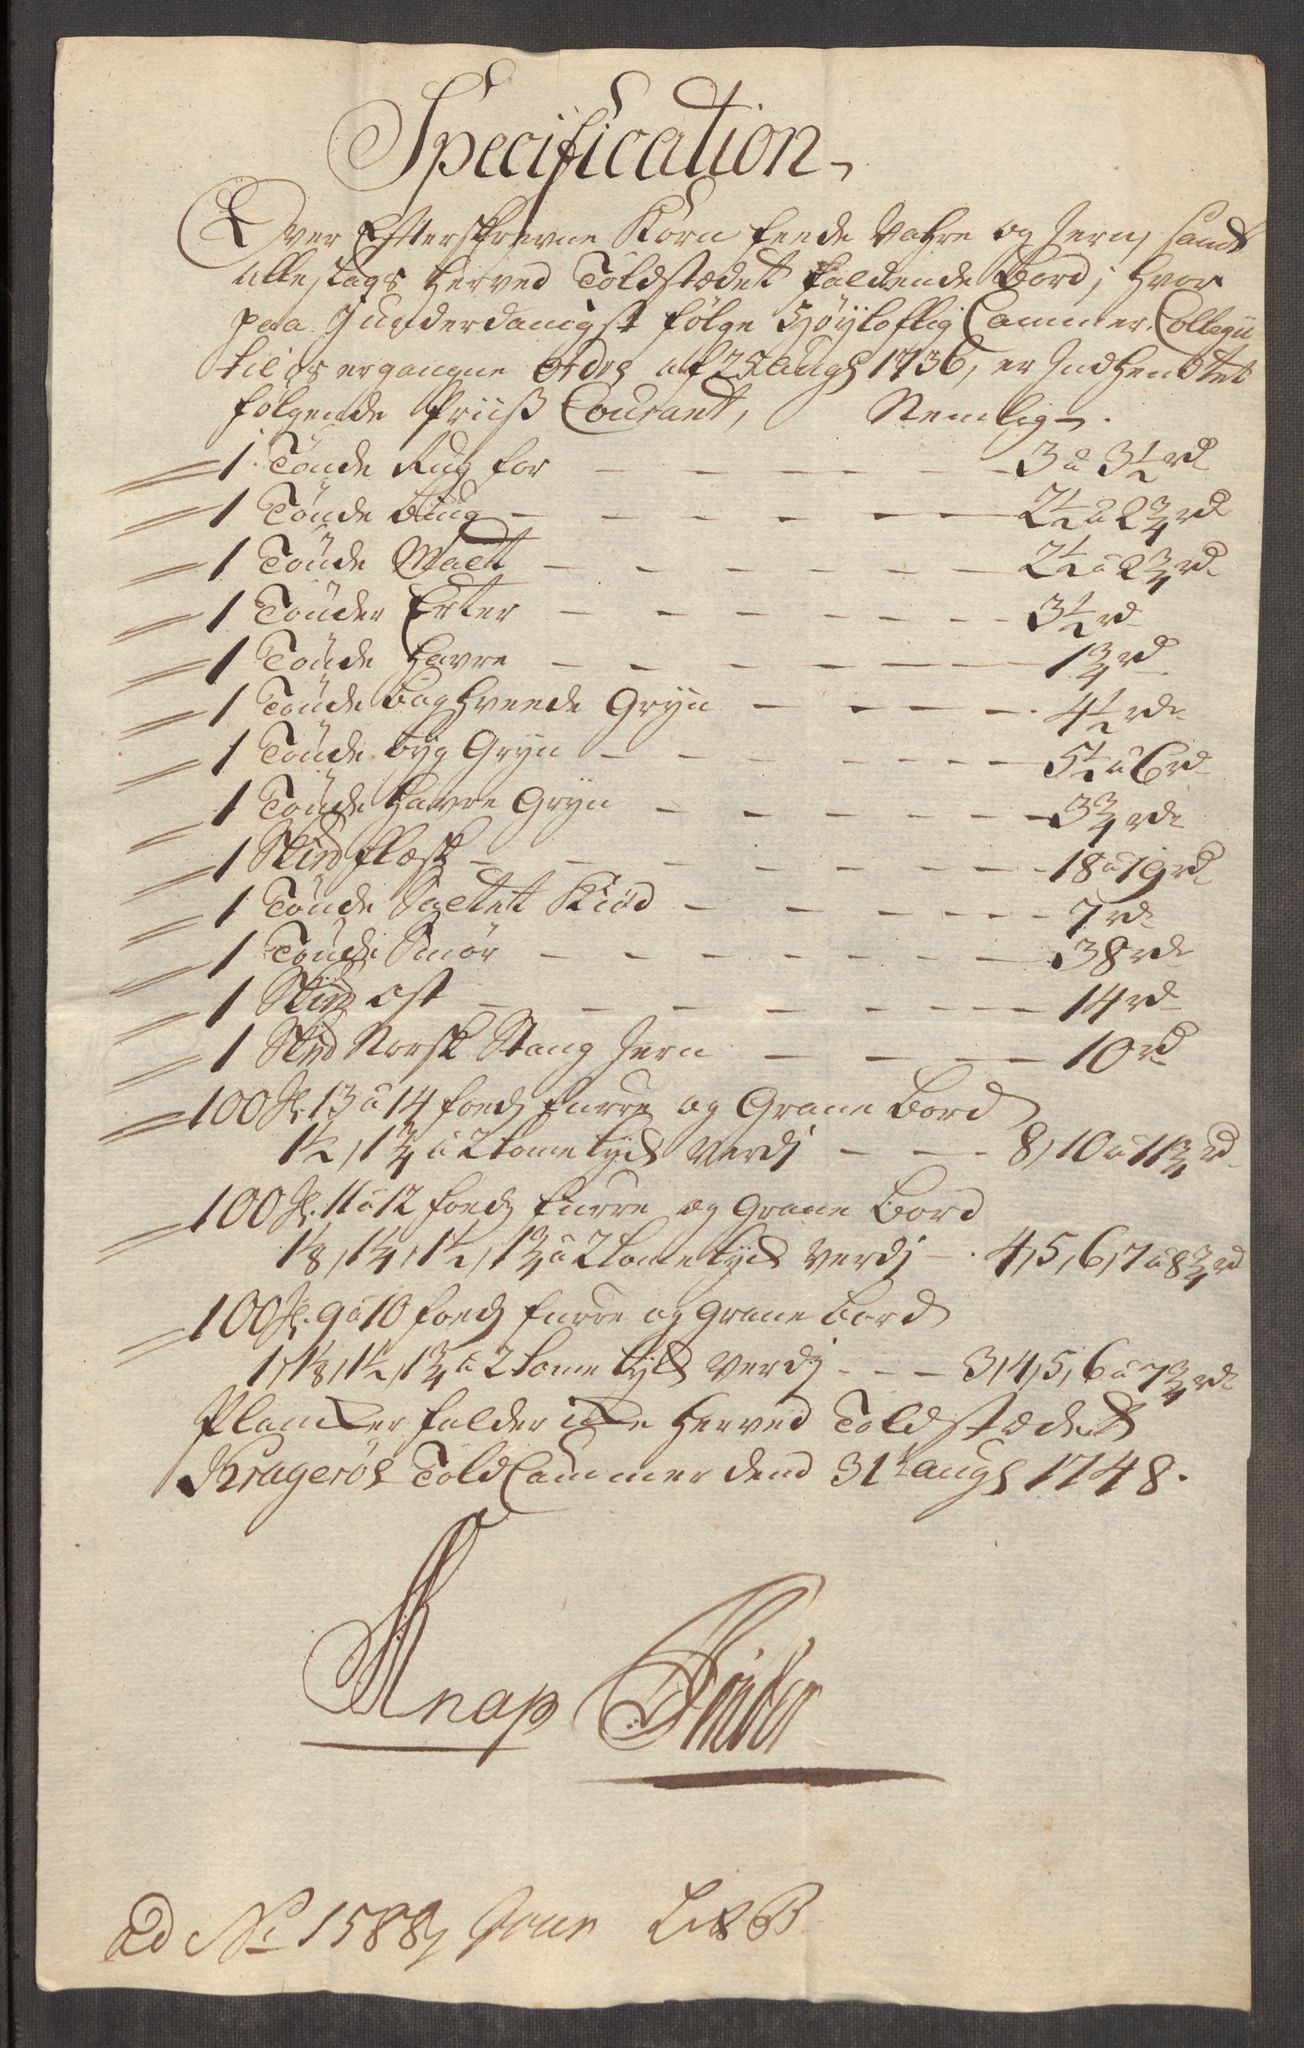 Specification
Over Efterskrevne Korn feede Vahre og Jern, samt
alleslags herved Toldstædet faldende Bord, hvor
paa I underdanigst følge Høyloflig Cammer Collegii
til os ergangne Ordre af 25 Augs 1736, er Indhendtet
følgende Priiss Courant, Nemlig.
1 Tönde Rug for - - - - - - 3 a 3½ rd
1 Tönde biug - - - - - - 2½ a 2¾ rd
1 Tönde Malt - - - - - - 2½ a 2¾ rd
1 Tönder Erter - - - - - - 3½ rd
1 Tönde Havre - - - - - - 1¾ rd
1 Tönde boghveede Gryn - - - - 4½ rd
1 Tönde byg Gryn - - - - - - 5½ a 6 rd
1 Tönde Havre Gryn - - - - - 3¾ rd
1 Skpd flæsk - - - - - - 18 a 19 rd
1 Tönde Saltet Kiød - - - - - 7 rd
1 Tönde Smør - - - - - - 38 rd
1 Skpd Ost - - - - - - 14 rd
1 Skpd Norsk Stang Jern - - - - 10 rd
100 st. 13 a 14 foeds furre og Grane Bord
1½, 1¾ a 2 tome tyck Verdj - - - 8, 10 a 11¾ rd
100 st. 11 a 12 foeds furre og Grane Bord
1⅛, 1¼, 1½, 1¾ a 2 tome tyck Verdj - 4, 5, 6, 7 a 8¾ rd
100 st. 9 a 10 foeds furre og Grane bord
1, 1⅛, 1½, 1¾ a 2 tome tyck Verdj - - - 3, 4, 5, 6 a 7¾ rd
Plancker falder icke herved Toldstædet
Kragerøe Told Cammer dend 31t Augs 1748.
Knap
ad No 1588 Jour Lit B